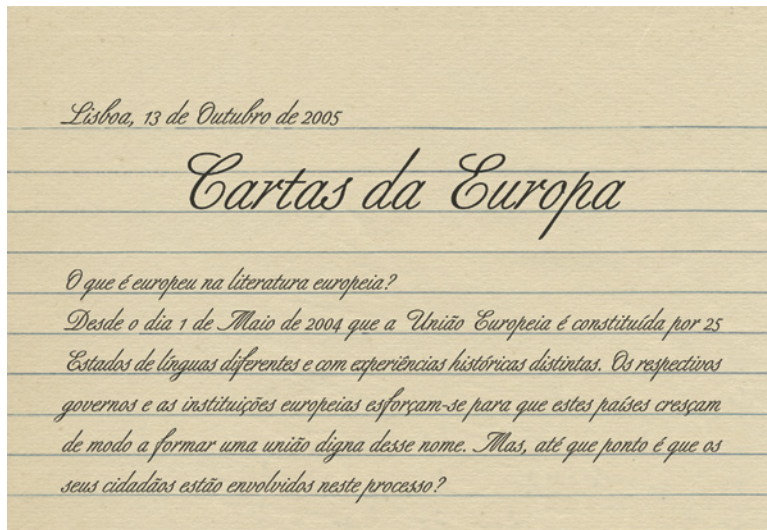 Lisboa, 13 de Outubro de 2005
Cartas da Europa
O que é europeu na literatura europeia?
Desde o dia 1 de Maio de 2004 que a União Europeia é constituída por 25
Estados de línguas diferentes e com experiências históricas distintas. Os respectivos
governos e as instituições europeias esforçam-se para que estes países cresçam
de modo a formar uma união digna desse nome. Mas, até que ponto é que os
seus cidadãos estão envolvidos neste processo?